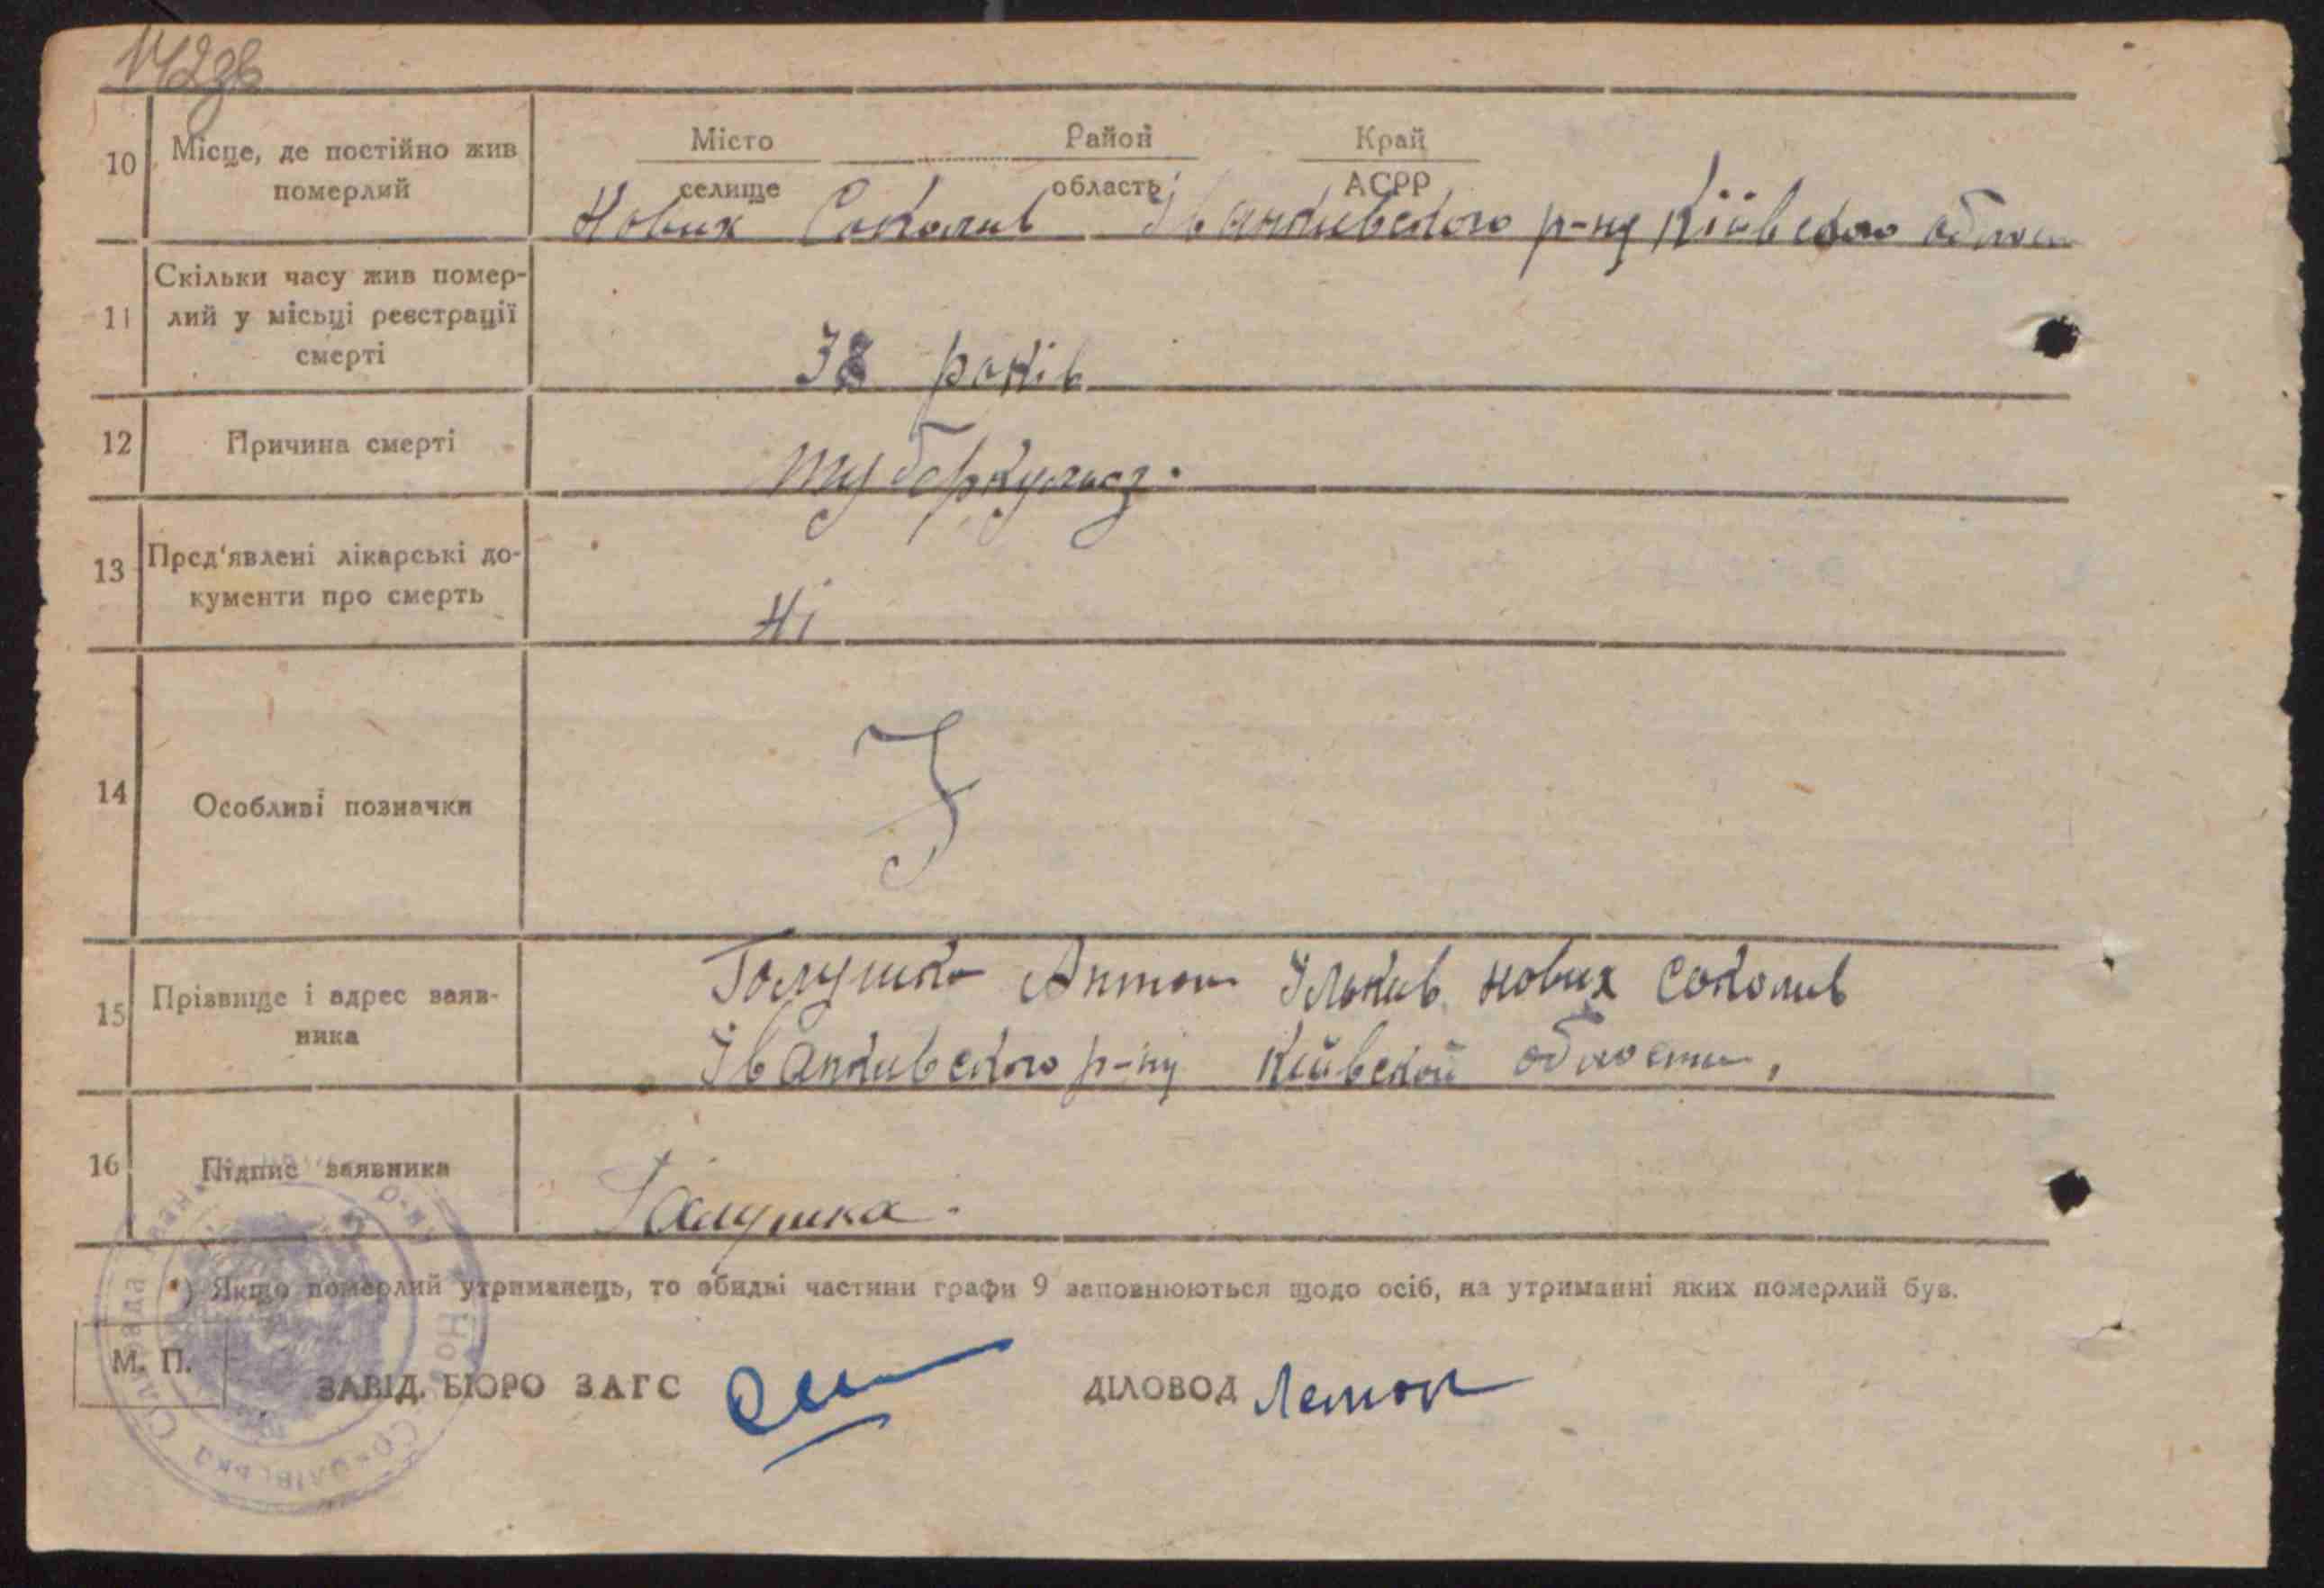 142зв
10 Місце, де постійно жив померлий
Місто Район Край
селище область АСРР
Нових Соколив Іванкивского р-ну Київского област
11 Скільки часу жив помер-
лий у місьці реєстрації
смерті
38 років
12 Причина смерті
туберкульоз.
13 Пред'явлені лікарські до-
кументи про смерть
Ні
14 Особливі позначки
15 Прізвище і адрес заяв-
ника
Галушка Антон Ількив Нових Соколив
Іванкивского р-ну Київской области,
16 Підпис заявника
Галушка.
*) Якщо померлий утриманець, то обидві частини графи 9 заповнюються щодо осіб, на утриманні яких померлий був.
М. П.
ЗАВІД. БЮРО ЗАГС
ДІЛОВОД